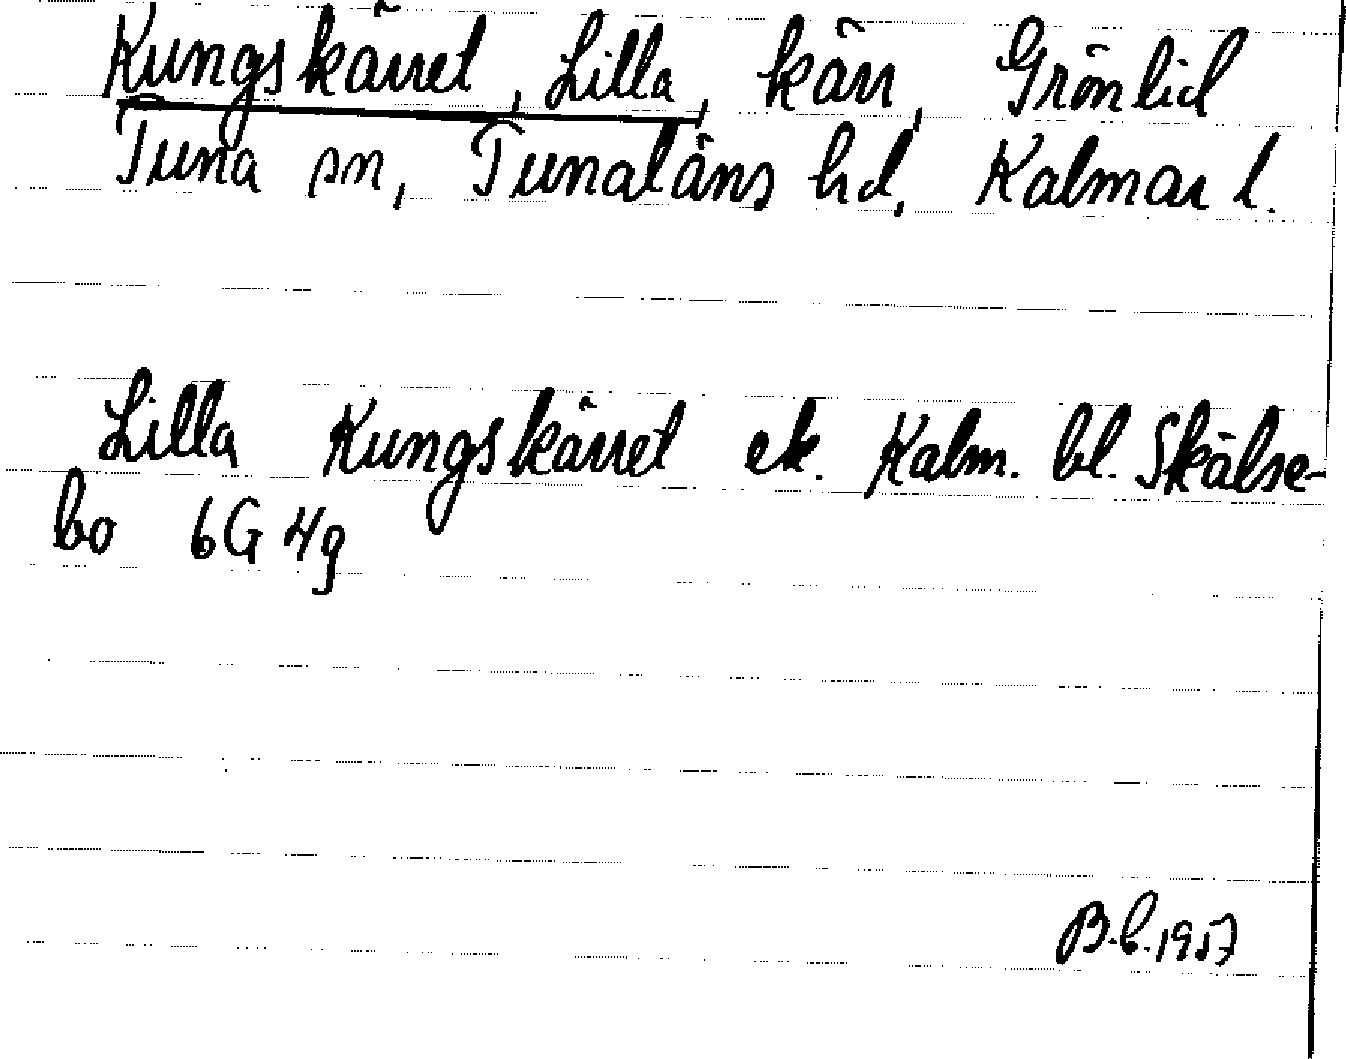 Kungskärret, Lilla, kärr, Grönlid
Tuna sn, Tunaläns hd, Kalmar l.
Lilla Kungskärret ek. Kalm. bl. Skälse-
bo 6G 4g
1957